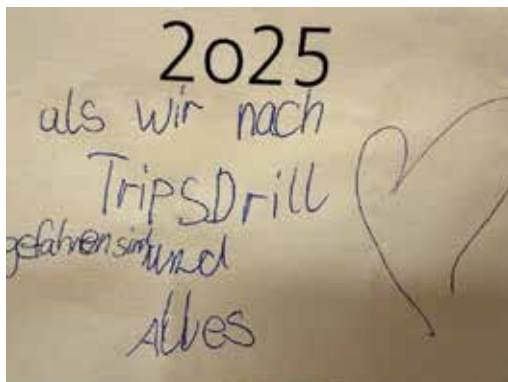 2025
als wir nach
TripsDrill
gefahren sind
und
Alles